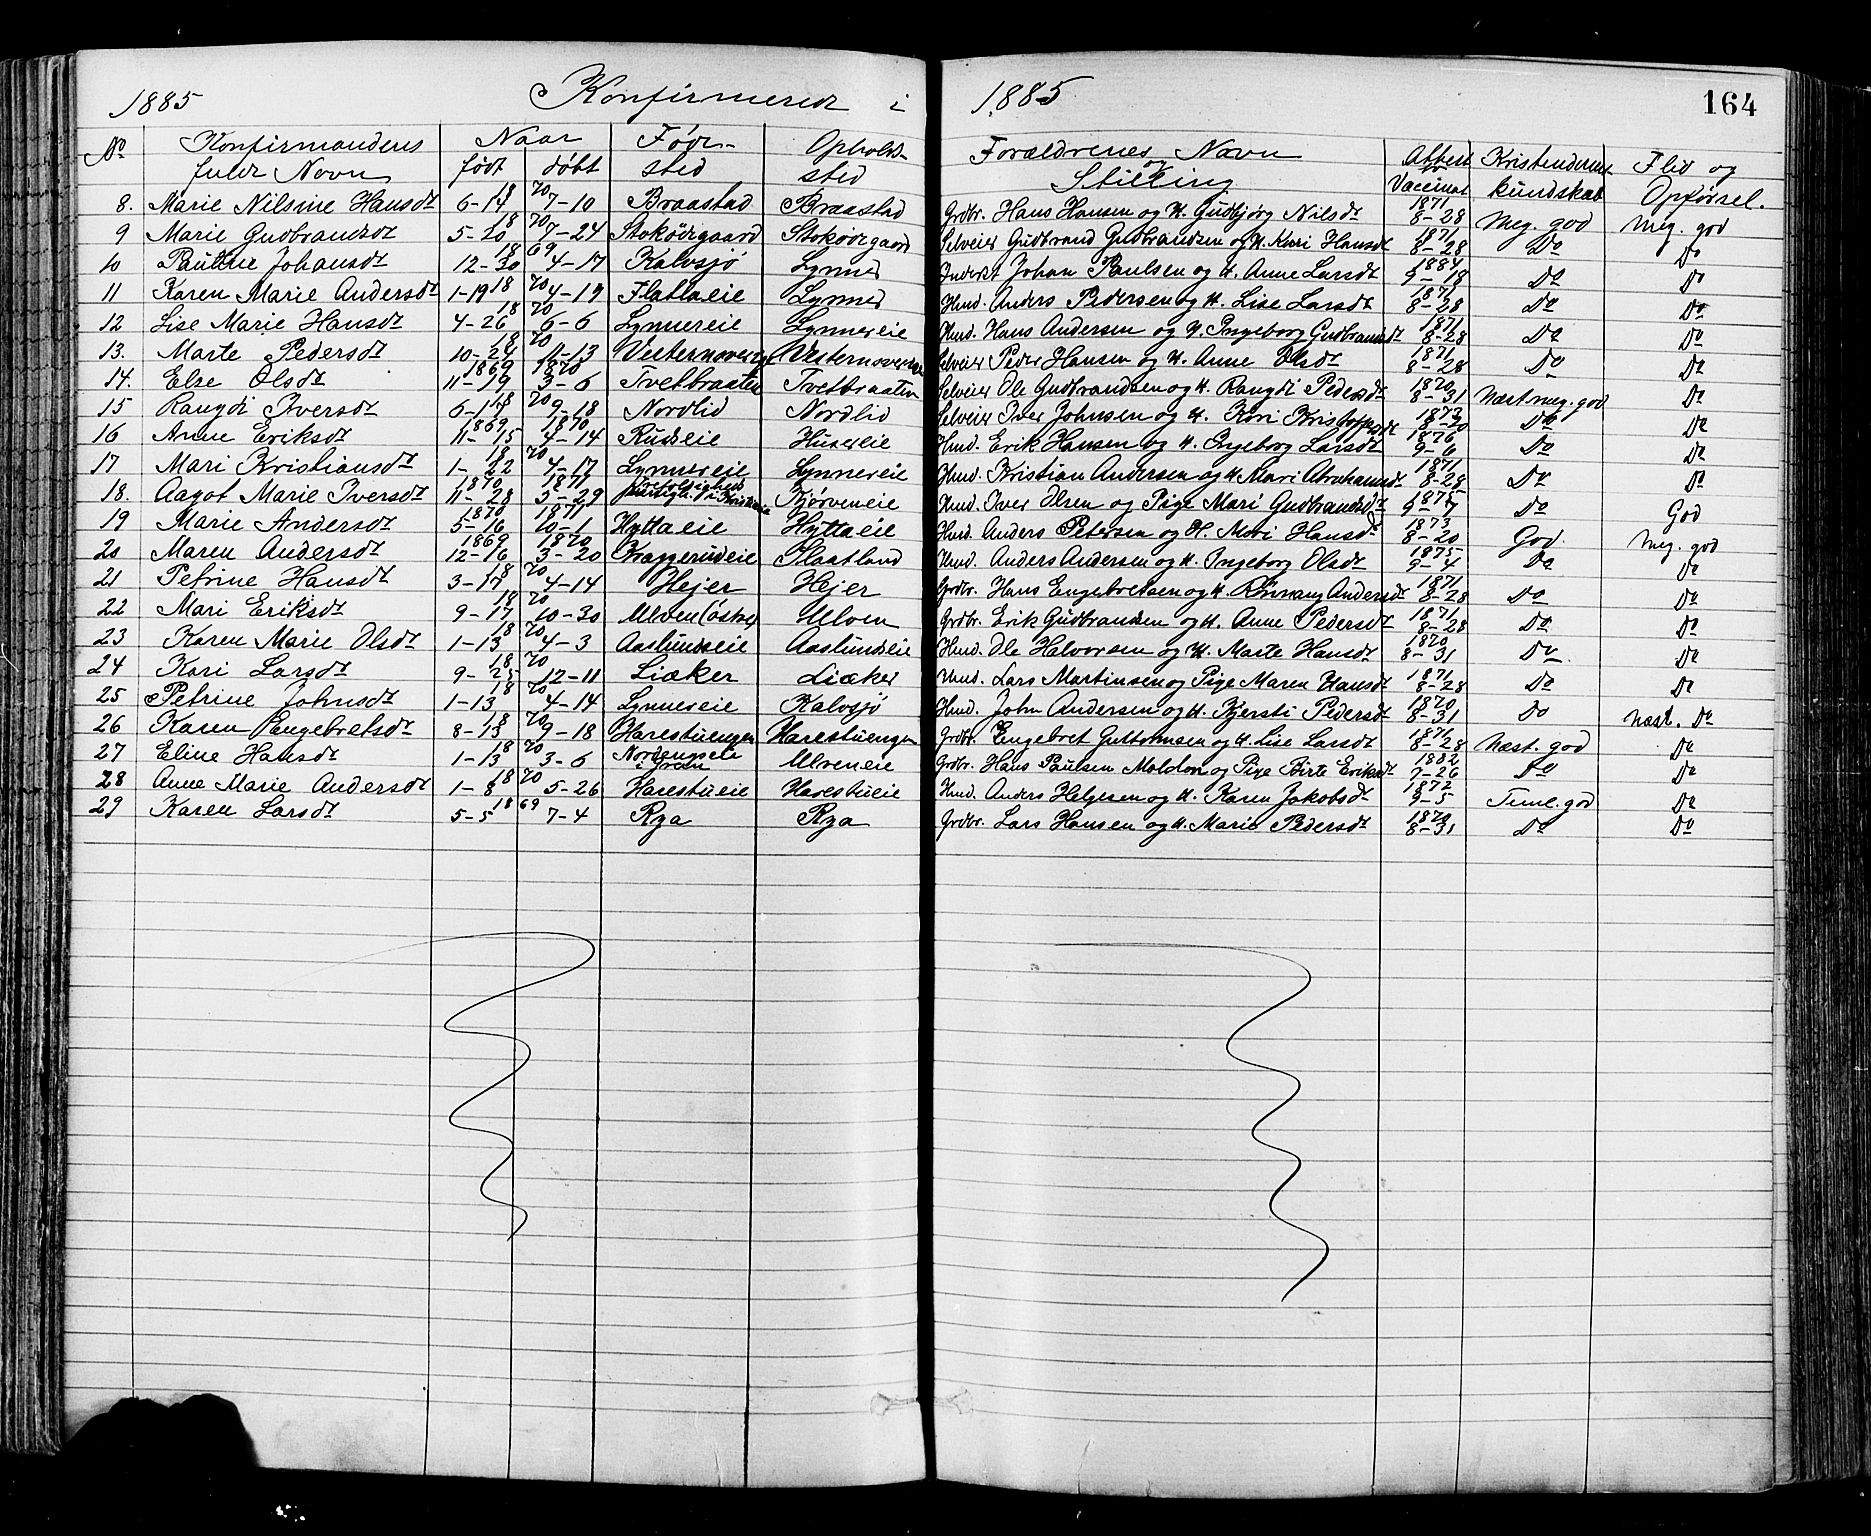 1885 Konfirmerede i 1885 164
No Konfirmandens fulde Navn Naar født døbt Føde-sted Opholds-sted Forældrenes Navn og Stilling Attest Vaccinat Kristendoms kundskab Flid og Opførsel.
8. Marie Nilsine Hansdt 6-14 18 70 7-10 Braastad Braastad Grdbr. Hans Hansen og H. Gudbjørg Nilsdt 1871 8-28 Meg. god Meg. god
9 Marie Gudbrandsdt 5-20 18 70 7-24 Stokørgaard Stokørgaard Selveier Gudbrand Gudbrandsen og H. Kari Hansdt 1871 8-28 Do Do
10 Pauline Johansdt 12-30 18 69 4-17 Kalvsjø Lynne Inderst Johan Paulsen og H. Anne Larsdt 1884 9-18 Do Do
11 Karen Marie Andersdt 1-19 18 70 4-19 Flattaeie Lynne Hmd. Anders Pedersen og H. Lise Larsdt 1871 8-28 Do Do
12 Lise Marie Hansdt 4-26 18 70 6-6 Lynnereie Lynnereie Hmd. Hans Andersen og H. Ingeborg Gudbrandsdt 1871 8-28 Do Do
13. Marte Pedersdt 10-24 18 70 11-13 Vesternovereie Vesternovereie Selveier Peder Hansen og H. Anne Olsdt 1871 8-28 Do Do
14. Else Olsdt 1869 11-19 1870 3-6 Tvetbraaten Tvetbraaten Selveier Ole Gudbrandsen og H. Rangdi Pedersdt 1870 8-31 Næst meg. god Do
15 Rangdi Iversdt 6-17 18 70 9-18 Nordlid Nordlid Selveier Iver Johnsen og H. Kari Kristofersdt 1873 8-20 Do Do
16 Anne Eriksdt 1869 11-15 1870 4-14 Rudseie Husereie Hmd. Erik Hansen og H. Ingeborg Larsdt 1876 9-6 Do Do
17 Mari Kristiansdt 1-22 18 70 4-17 Lynnereie Lynnereie Hmd. Kristian Andersen og H. Mari Abrahamsdt 1871 8-28 Do Do
18. Aagot Marie Iversdt 1870 11-28 1871 3-29 i Kristiania Kjørveneie Hmd. Iver Olsen og Pige Mari Gudbrandsdt 1875 9-7 Do God
19 Marie Andersdt 1870 5-16 1871 10-1 Hyttaeie Hyttaeie Hmd. Anders Petersen og H. Mari Hansdt 1873 8-20 God. Meg. god
20 Maren Andersdt 1869 12-16 1870 3-20 Kraggerudeie Slaatland Hmd. Anders Andersen og H. Ingeborg Olsdt 1875 9-4 Do Do
21 Petrine Hansdt 3-17 18 70 4-14 Hejer Hejer Grdbr. Hans Engebretsen og H. Rønnaug Andersdt 1871 8-28 Do Do
22 Mari Eriksdt 9-17 18 70 10-30 Ulven (østre) Ulven Grdbr. Erik Gudbrandsen og H. Anne Pedersdt 1871 8-28 Do Do
23 Karen Marie Olsdt 1-13 18 70 4-3 Aaslundseie Aaslundseie Hmd. Ole Halvorsen og H. Marte Hansdt 1870 8-31 Do Do
24 Kari Larsdt 9-25 18 70 12-11 Liæker Liæker Hmd. Lars Martinsen og Pige Maren Hansdt 1871 8-28 Do Do
25 Petrine Johnsdt 1-13 18 70 4-14 Lynnereie Kalvsjø Hmd. John Andersen og H. Kjersti Pedersdt 1870 8-31 Do Næst. Do
26 Karen Engebretsdt 8-13 18 70 9-18 Harestuengen Harestuengen Grdbr. Engebret Guttormsen og H. Lise Larsdt 1871 8-28 Næst. god Do
27 Eline Hansdt 1-13 18 70 3-6 i Gran Ulveneie Grdbr. Hans Paulsen Molden og Pige Birte Eriksdt 1882 7-26 Do Do
28 Anne Marie Andersdt 1-8 18 70 5-26 Harestueie Harestueie Hmd. Anders Helgesen og H. Karen Jakobsdt 1872 9-5 Teml. god Do
29 Karen Larsdt 5-5 18 69 7-4 Rya Rya Grdbr. Lars Hansen og H. Marie Pedersdt 1870 8-31 Do Do